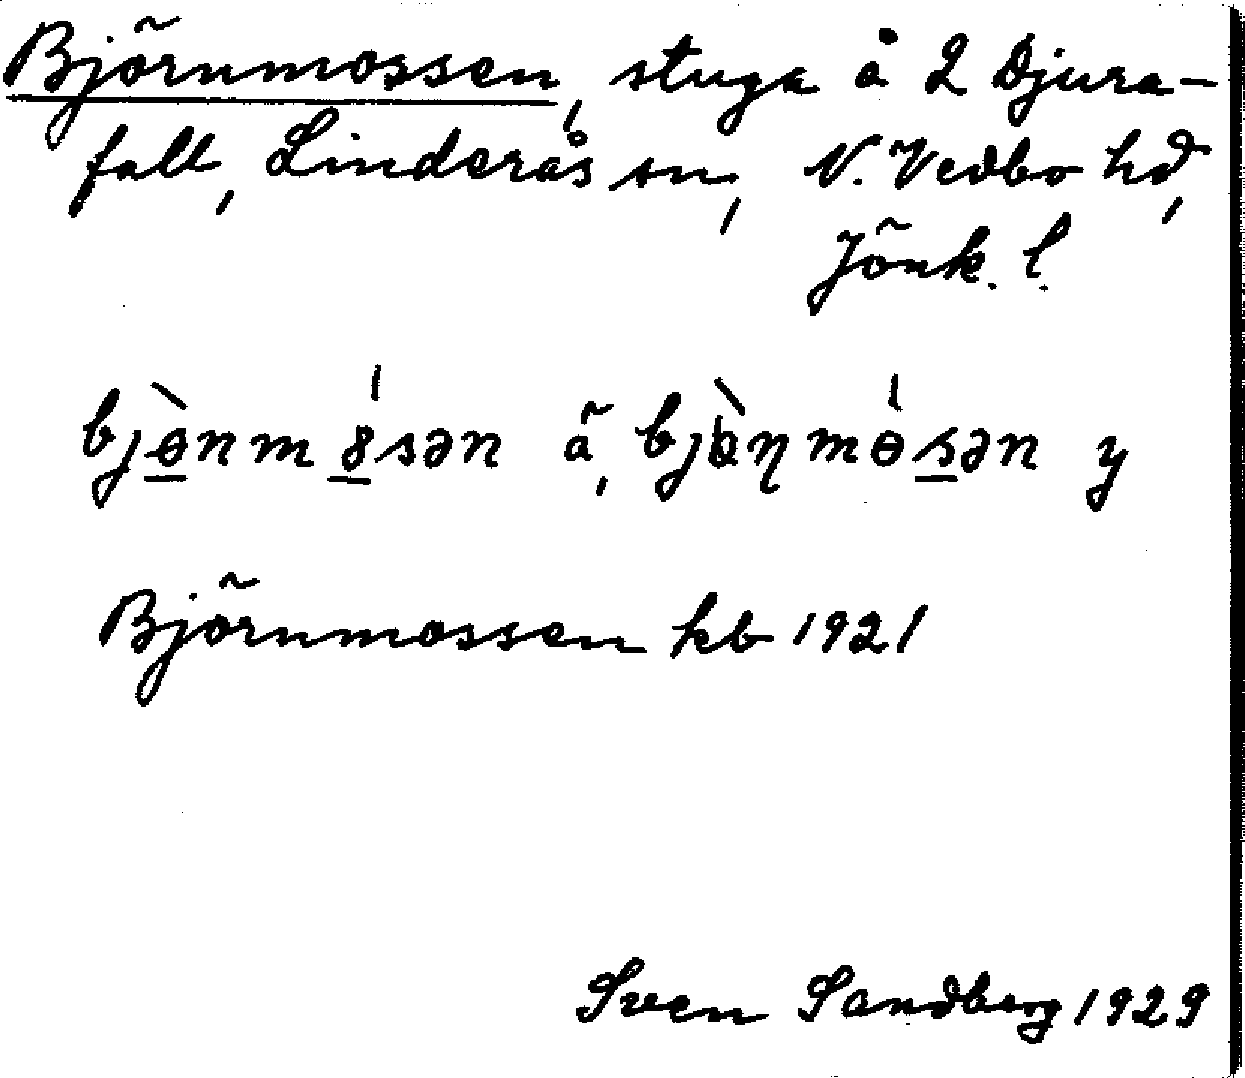 Björnmossen, stuga å 2 Djura-
fall, Linderås sn, N. Vedbo hd,
Jönk. l.
bjɵ̀nmȣ́sən ä, bjɵ̀ŋmɵ́sən y
Björnmossen kb 1921
Sven Sandberg 1929